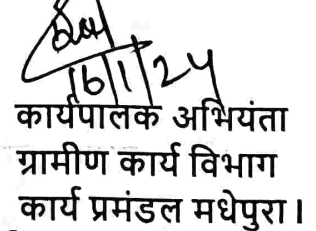 16/1/24
कार्यपालक अभियंता
ग्रामीण कार्य विभाग
कार्य प्रमंडल मधेपुरा।